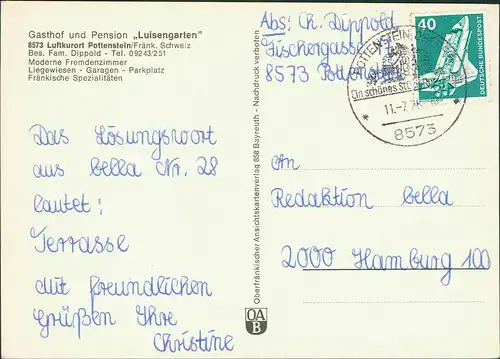 Gasthof und Pension „Luisengarten"
8573 Luftkurort Pottenstein/Fränk. Schweiz
Bes. Fam. Dippold - Tel. 09243/251
Moderne Fremdenzimmer
Liegewiesen - Garagen - Parkplatz
Fränkische Spezialitäten
Das Lösungswort
aus bella Nr. 28
lautet:
Terrasse
Mit freundlichen
Grüßen Ihre
Christine
Oberfränkischer Ansichtskartenverlag 858 Bayreuth - Nachdruck verboten
OA
B
Abs: Ch. Dippold
Fischergasse
8573 Pottenstein
40
DEUTSCHE BUNDESPOST
POTTENSTEIN
Ein schönes
11.-7.78
8573
An
Redaktion bella
2000 Hamburg 100